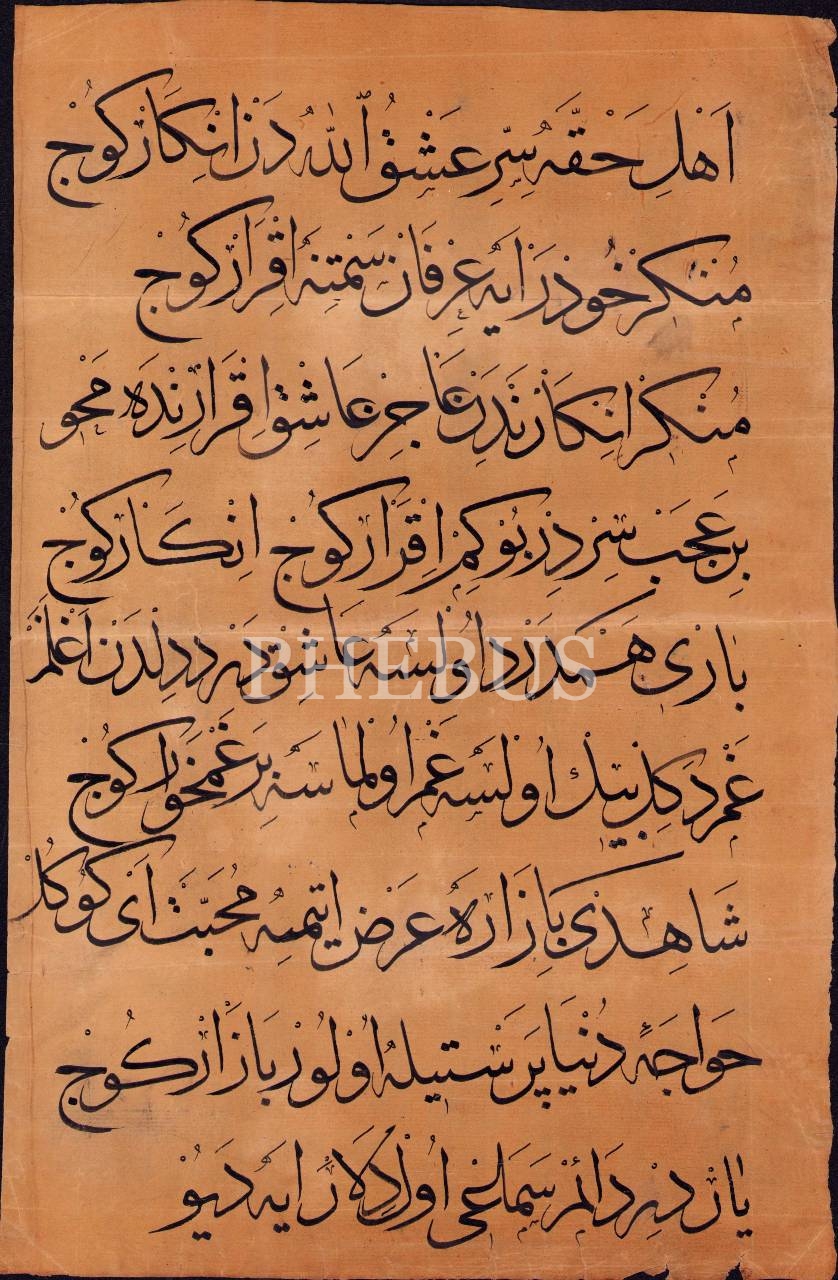 اَهْلِ حَقَّه سِرِّ عَشْقُ اللهُ دَنْ اِنْكَارْ كُوجْ
مُنْكِرْ خُودْرَايَه عِرْفَانْ سَمْتِنَه اِقْرَارْ كُوجْ
مُنْكِرْ اِنْكَارِنْدَنْ عَاجِزْ عَاشِقْ اِقْرَارِنْدَه مَحْو
بِرْ عَجَبْ سِرْدِرْ بُو كِمْ اِقْرَارْ كُوجْ اِنْكَارْ كُوجْ
بَارِى هَمْدَرْدْ اُولْسَه عَاشِقْ دَرْد دِلْدَنْ اَغْلَمَزْ
غَمْ دَكِلْ بِيكْ اُولْسَه غَمْ اُولْمَاسَه بِرْ غَمْخَوَارْ كُوجْ
شَاهِدِى بَازَارَه عَرْض اِيتْمِه مُحَبَّتْ اَىْ كُوكُلْ
خَواجَۀ دُنْيَا پَرَسْتِيلَه اُولُورْ بَازَارْ كُوجْ
يَارْ دِيرْ دَائِمْ سَمَاعِى اُولْ دِلَارَايَه دَيُوْ
PHEBUS